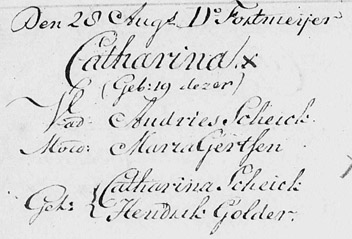 Den 28 Augs Ds Fortmeijer
Catharina x
(Geb: 19 dezer)
Vad: Andries Scheick.
Moed: Maria Gertsen
Get: { Catharina Scheick
Hendrik Golder.